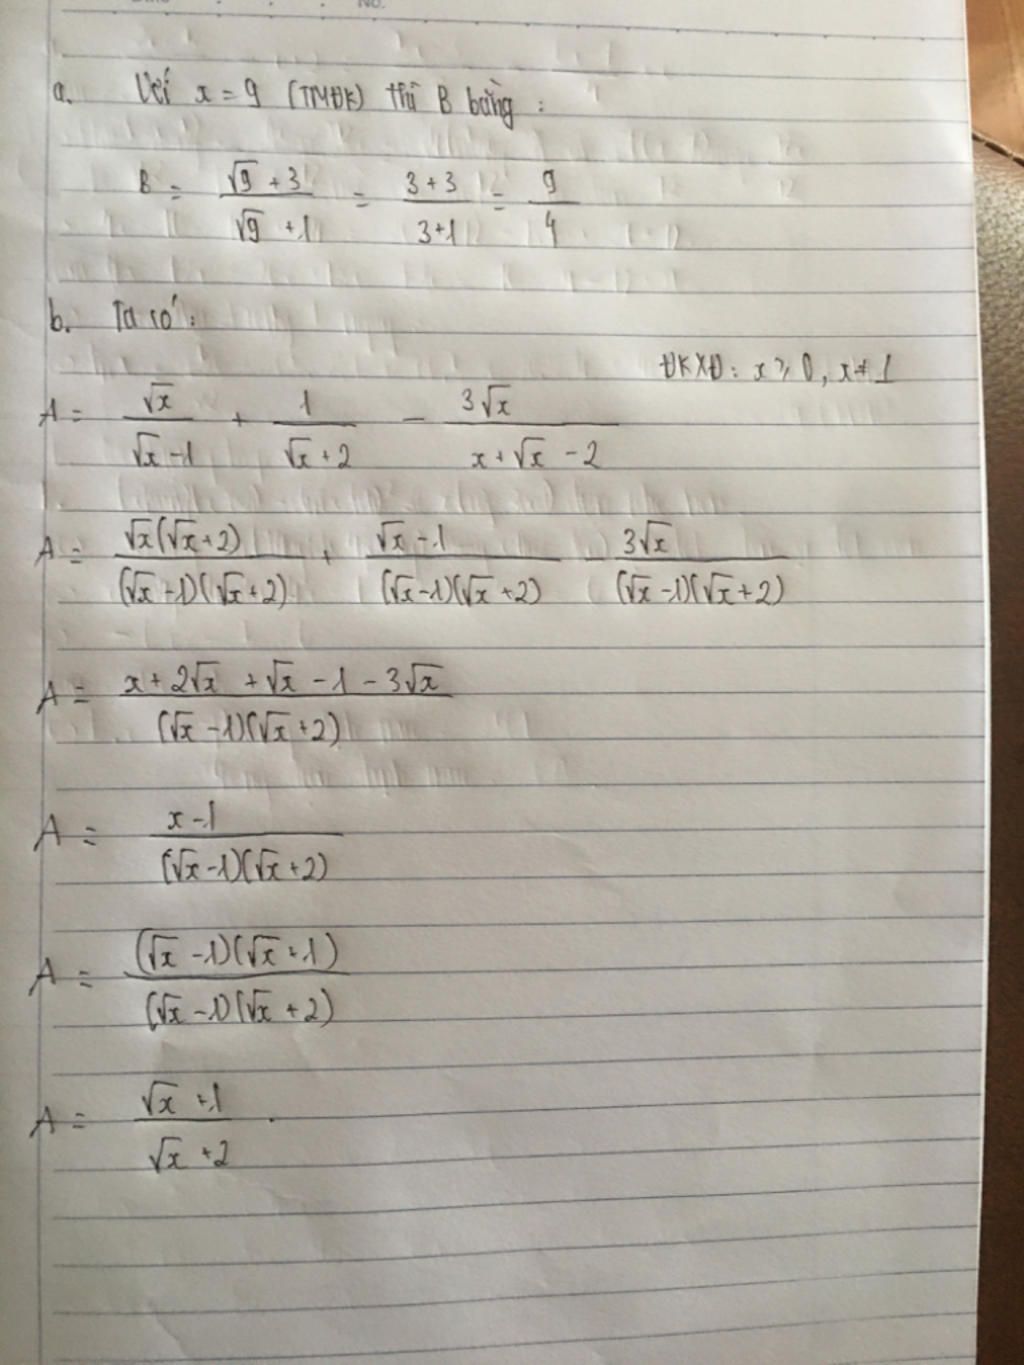 No.
a. Với x = 9 (TMĐK) thì B bằng :
B = (√9 + 3)/(√9 + 1) = (3 + 3)/(3 + 1) = 9/4
b. Ta có :
ĐKXĐ : x ≥ 0, x ≠ 1
A = √x/(√x - 1) + 1/(√x + 2) - 3√x/(x + √x - 2)
A = √x(√x + 2)/((√x - 1)(√x + 2)) + (√x - 1)/((√x - 1)(√x + 2)) - 3√x/((√x - 1)(√x + 2))
A = (x + 2√x + √x - 1 - 3√x)/((√x - 1)(√x + 2))
A = (x - 1)/((√x - 1)(√x + 2))
A = ((√x - 1)(√x + 1))/((√x - 1)(√x + 2))
A = (√x + 1)/(√x + 2) .